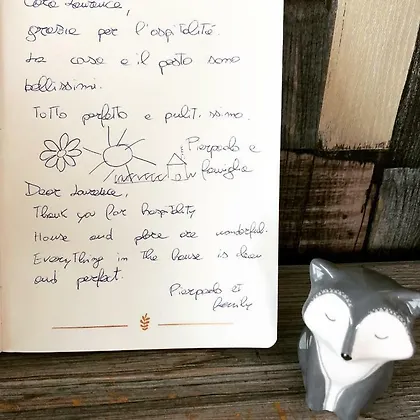 Cara Laurence,
grazie per l'ospitalité.
La casa e il posto sono
bellissimi.
Tutto perfetto e pulitissimo.
Pierpaolo e
famiglia
Dear Laurence,
Thank you for hospitality
House and place are wonderful.
Everything in the house is clean
and perfect.
Pierpaolo et
family